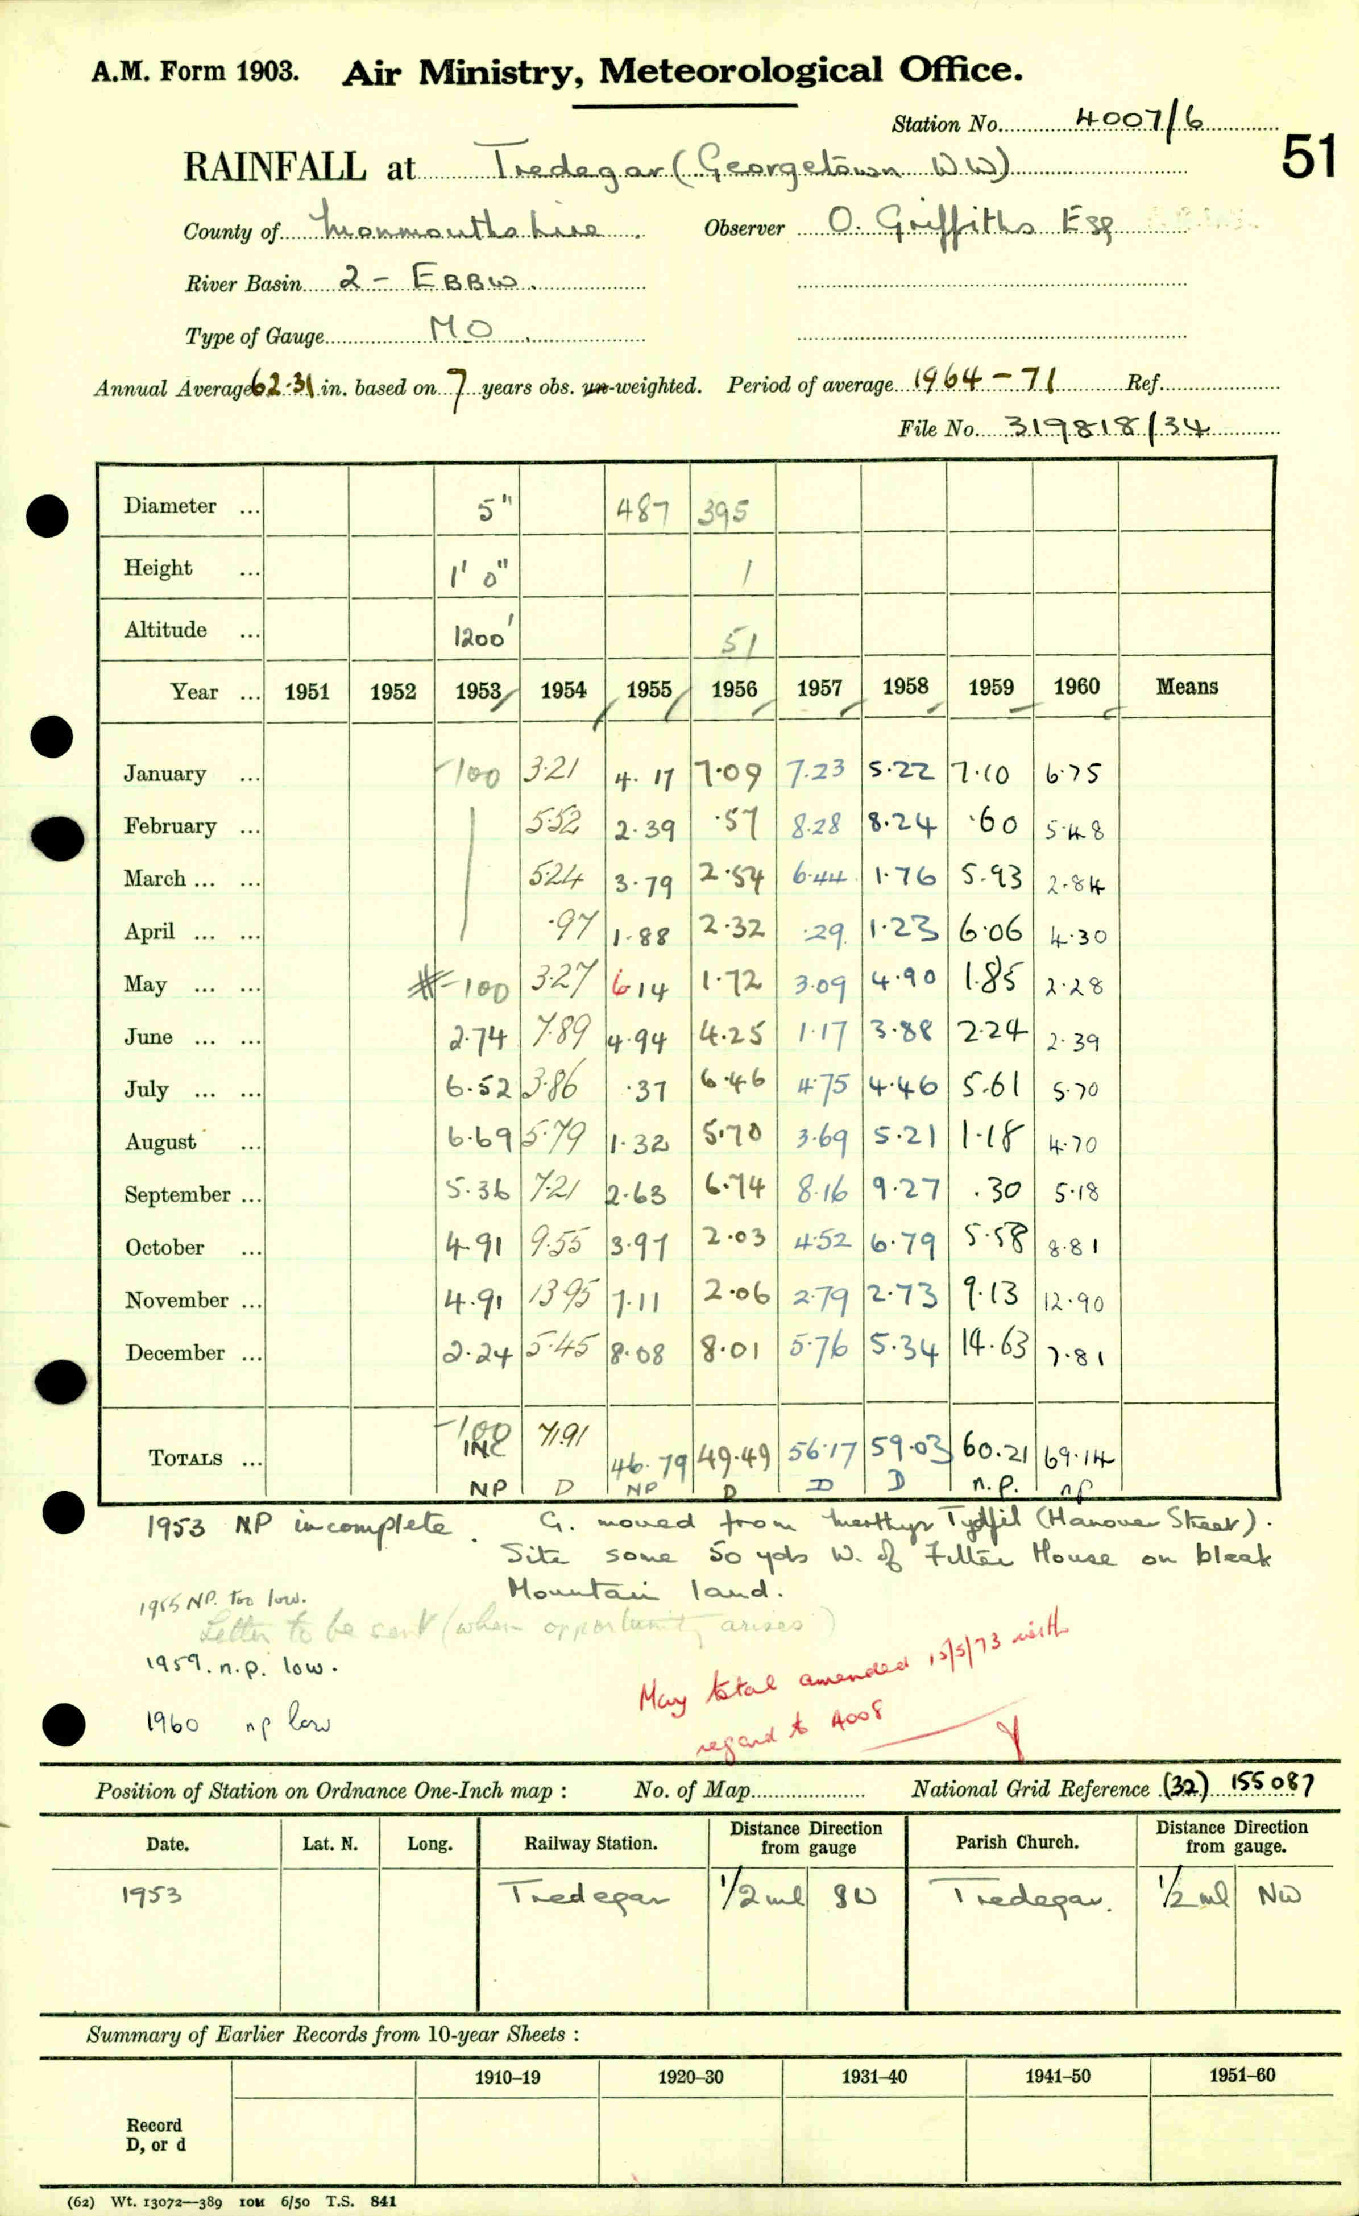 A.M. Form 1903. Air Ministry, Meteorological Office.
Station No. 4007/6
51
RAINFALL at Tredegar (Georgetown WW)
County of Monmouthshire. Observer O. Griffiths Esq
River Basin 2 - EBBW.
Type of Gauge MO
Annual Average 62.31 in. based on 7 years obs. un-weighted. Period of average 1964-71 Ref.
File No. 319818/34
Diameter ... 5" 487 395
Height ... 1' 0" 1
Altitude ... 1200' 51
Year ... 1951 1952 1953 1954 1955 1956 1957 1958 1959 1960 Means
January ... -100 3.21 4.17 7.09 7.23 5.22 7.10 6.75
February ... 5.52 2.39 .57 8.28 8.24 .60 5.48
March ... ... 5.24 3.79 2.54 6.44 1.76 5.93 2.84
April ... ... .97 1.88 2.32 .29 1.23 6.06 4.30
May ... ... -100 3.27 6.14 1.72 3.09 4.90 1.85 2.28
June ... ... 2.74 7.89 4.94 4.25 1.17 3.88 2.24 2.39
July ... ... 6.52 3.86 .37 6.46 4.75 4.46 5.61 5.70
August ... 6.69 5.79 1.32 5.70 3.69 5.21 1.18 4.70
September ... 5.36 7.21 2.63 6.74 8.16 9.27 .30 5.18
October ... 4.91 9.55 3.97 2.03 4.52 6.79 5.58 8.81
November ... 4.91 13.95 7.11 2.06 2.79 2.73 9.13 12.90
December ... 2.24 5.45 8.08 8.01 5.76 5.34 14.63 7.81
TOTALS ... -100 INC 71.91 46.79 49.49 56.17 59.03 60.21 69.14
NP D NP D D D n.p. np
1953 NP incomplete. G. moved from Merthyr Tydfil (Hanover Street).
Site some 50 yds W. of Filter House on bleak
Mountain land.
1955 NP. too low.
Letter to be sent (when opportunity arises)
1959. n.p. low.
1960 np low
May total amended 15/5/73 with
regard to 4008
Position of Station on Ordnance One-Inch map : No. of Map National Grid Reference (32) 155087
Date. Lat. N. Long. Railway Station. Distance Direction from gauge Parish Church. Distance Direction from gauge.
1953 Tredegar 1/2 ml SW Tredegar. 1/2 ml NW
Summary of Earlier Records from 10-year Sheets :
1910–19 1920–30 1931–40 1941–50 1951–60
Record
D, or d
(62) Wt. 13072—389 10M 6/50 T.S. 841